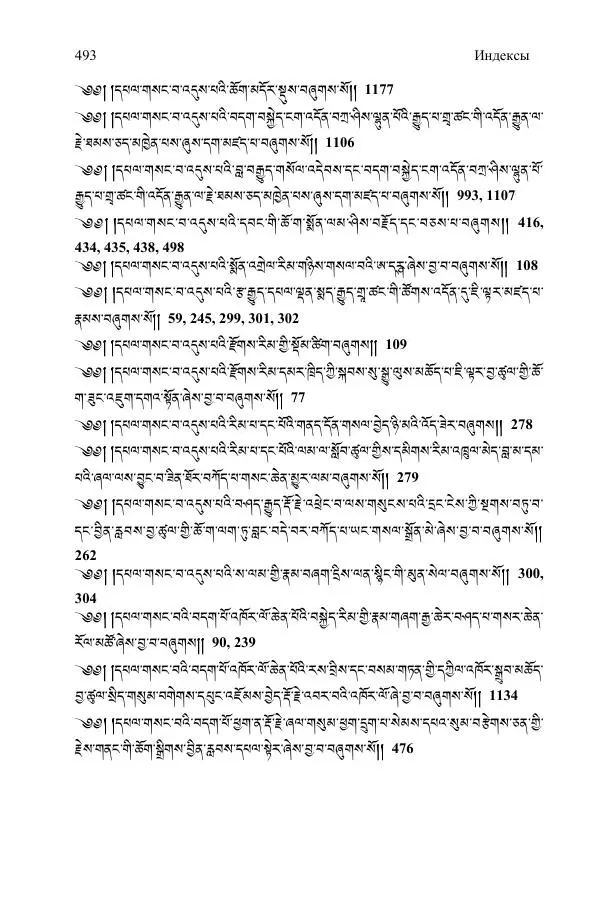 493 Индексы
༄༅། །དཔལ་གསང་བ་འདུས་པའི་ཆོག་མདོར་སྡུས་བཞུགས་སོ།། 1177
༄༅། །དཔལ་གསང་བ་འདུས་པའི་བདག་བསྐྱེད་ངག་འདོན་བཀྲ་ཤིས་ལྷུན་པོའི་རྒྱུད་པ་གྲྭ་ཚང་གི་འདོན་རྒྱུན་ལ་
རྗེ་ཐམས་ཅད་མཁྱེན་པས་ཞུས་དག་མཛད་པ་བཞུགས་སོ།། 1106
༄༅། །དཔལ་གསང་བ་འདུས་པའི་བླ་བརྒྱུད་གསོལ་འདེབས་དང་བདག་བསྐྱེད་ངག་འདོན་བཀྲ་ཤིས་ལྷུན་པོ་
རྒྱུད་པ་གྲྭ་ཚང་གི་འདོན་རྒྱུན་ལ་རྗེ་ཐམས་ཅད་མཁྱེན་པས་ཞུས་དག་མཛད་པ་བཞུགས་སོ།། 993, 1107
༄༅། །དཔལ་གསང་བ་འདུས་པའི་དབང་གི་ཆོ་ག་སྨོན་ལམ་ཤིས་བརྗོད་དང་བཅས་པ་བཞུགས།། 416,
434, 435, 438, 498
༄༅། །དཔལ་གསང་བ་འདུས་པའི་སྨོན་འགྲེལ་རིམ་གཉིས་གསལ་བའི་ཨ་དརྴ་ཞེས་བྱ་བ་བཞུགས་སོ།། 108
༄༅། །དཔལ་གསང་བ་འདུས་པའི་རྩ་རྒྱུད་དཔལ་ལྡན་སྨད་རྒྱུད་གྲྭ་ཚང་གི་ཚོགས་འདོན་དུ་ཇི་ལྟར་མཛད་པ་
རྣམས་བཞུགས་སོ།། 59, 245, 299, 301, 302
༄༅། །དཔལ་གསང་བ་འདུས་པའི་རྫོགས་རིམ་གྱི་སྡོམ་ཚིག་བཞུགས།། 109
༄༅། །དཔལ་གསང་བ་འདུས་པའི་རྫོགས་རིམ་དམར་ཁྲིད་ཀྱི་སྐབས་སུ་སྒྱུ་ལུས་མཆོད་པ་ཇི་ལྟར་བྱ་ཚུལ་གྱི་ཆོ་
ག་ཟུང་འཇུག་དགའ་སྟོན་ཞེས་བྱ་བ་བཞུགས་སོ།། 77
༄༅། །དཔལ་གསང་བ་འདུས་པའི་རིམ་པ་དང་པོའི་གནད་དོན་གསལ་བྱེད་ཉི་མའི་འོད་ཟེར་བཞུགས།། 278
༄༅། །དཔལ་གསང་བ་འདུས་པའི་རིམ་པ་དང་པོའི་ལམ་ལ་སློབ་ཚུལ་གྱིས་དམིགས་རིམ་འཁྲུལ་མེད་བླ་མ་དམ་
པའི་ཞལ་ལས་བྱུང་བ་ཟིན་ཐོར་བཀོད་པ་གསང་ཆེན་མྱུར་ལམ་བཞུགས་སོ།། 279
༄༅། །དཔལ་གསང་བ་འདུས་པའི་བཤད་རྒྱུད་རྡོ་རྗེ་འཕྲེང་བ་ལས་གསུངས་པའི་དྲང་ངེས་ཀྱི་སྔགས་བཏུ་བ་
དང་བྱིན་རླབས་བྱ་ཚུལ་གྱི་ཆོ་ག་ལག་ཏུ་བླང་བདེ་བར་བཀོད་པ་ཡང་གསལ་སྒྲོན་མེ་ཞེས་བྱ་བ་བཞུགས་སོ།།
262
༄༅། །དཔལ་གསང་བ་འདུས་པའི་ས་ལམ་གྱི་རྣམ་བཞག་དྲིས་ལན་སྙིང་གི་མུན་སེལ་བཞུགས་སོ།། 300,
304
༄༅། །དཔལ་གསང་བའི་བདག་པོ་འཁོར་ལོ་ཆེན་པོའི་བསྐྱེད་རིམ་གྱི་རྣམ་གཞག་རྒྱ་ཆེར་བཤད་པ་གསར་ཆེན་
རོལ་མཚོ་ཞེས་བྱ་བ་བཞུགས།། 90, 239
༄༅། །དཔལ་གསང་བའི་བདག་པོ་འཁོར་ལོ་ཆེན་པོའི་རས་བྲིས་དང་བསམ་གཏན་གྱི་དཀྱིལ་འཁོར་སྒྲུབ་མཆོད་
བྱ་ཚུལ་སྲིད་གསུམ་བགེགས་དཔུང་འཇོམས་བྱེད་རྡོ་རྗེ་འབར་བའི་འཁོར་ལོ་ཞེ་བྱ་བ་བཞུགས་སོ།། 1134
༄༅། །དཔལ་གསང་བའི་བདག་པོ་ཕྱག་ན་རྡོ་རྗེ་ཞལ་གསུམ་ཕྱག་དྲུག་པ་སེམས་དཔའ་སུམ་བརྩེགས་ཅན་གྱི་
རྗེས་གནང་གི་ཆོག་སྒྲིགས་བྱིན་རླབས་དཔལ་སྟེར་ཞེས་བྱ་བ་བཞུགས་སོ།། 476